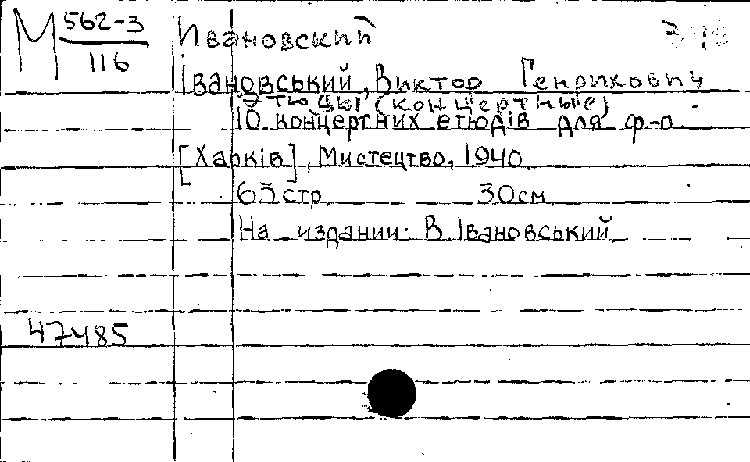 М 562-3
116
Ивановский
Івановський, Виктор Генрихович
Этюды (концертные)
10 концертних етюдів для ф-о
[Харків], Мистецтво, 1940
63 стр 30 см
На издании: В. Івановський
47485